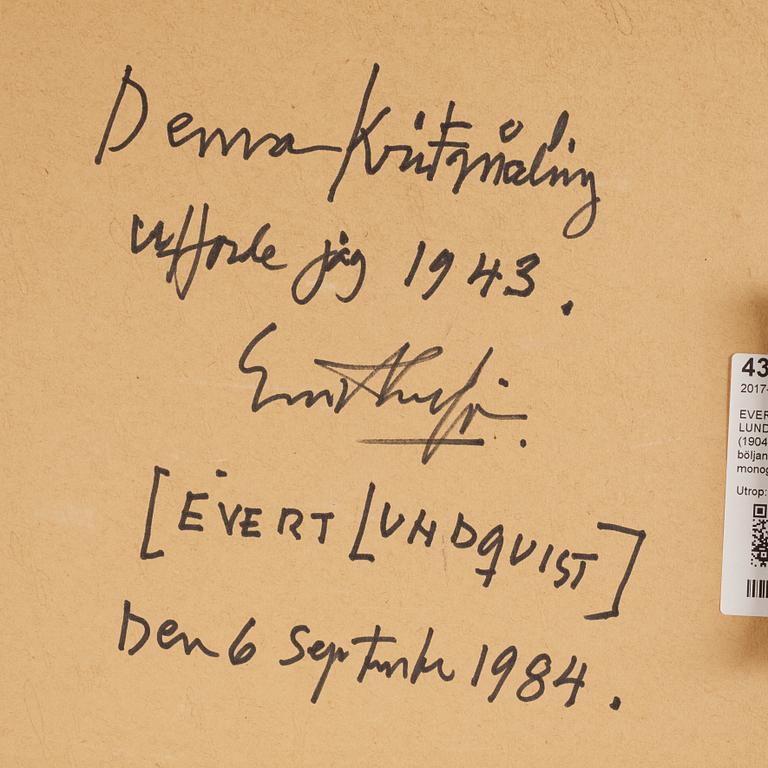 Denna Kritmålning
utförde jag 1943.
[EVERT LUNDQUIST]
Den 6 September 1984.
43
2017-
EVER
LUND
(1904
böljan
monog
Utrop: